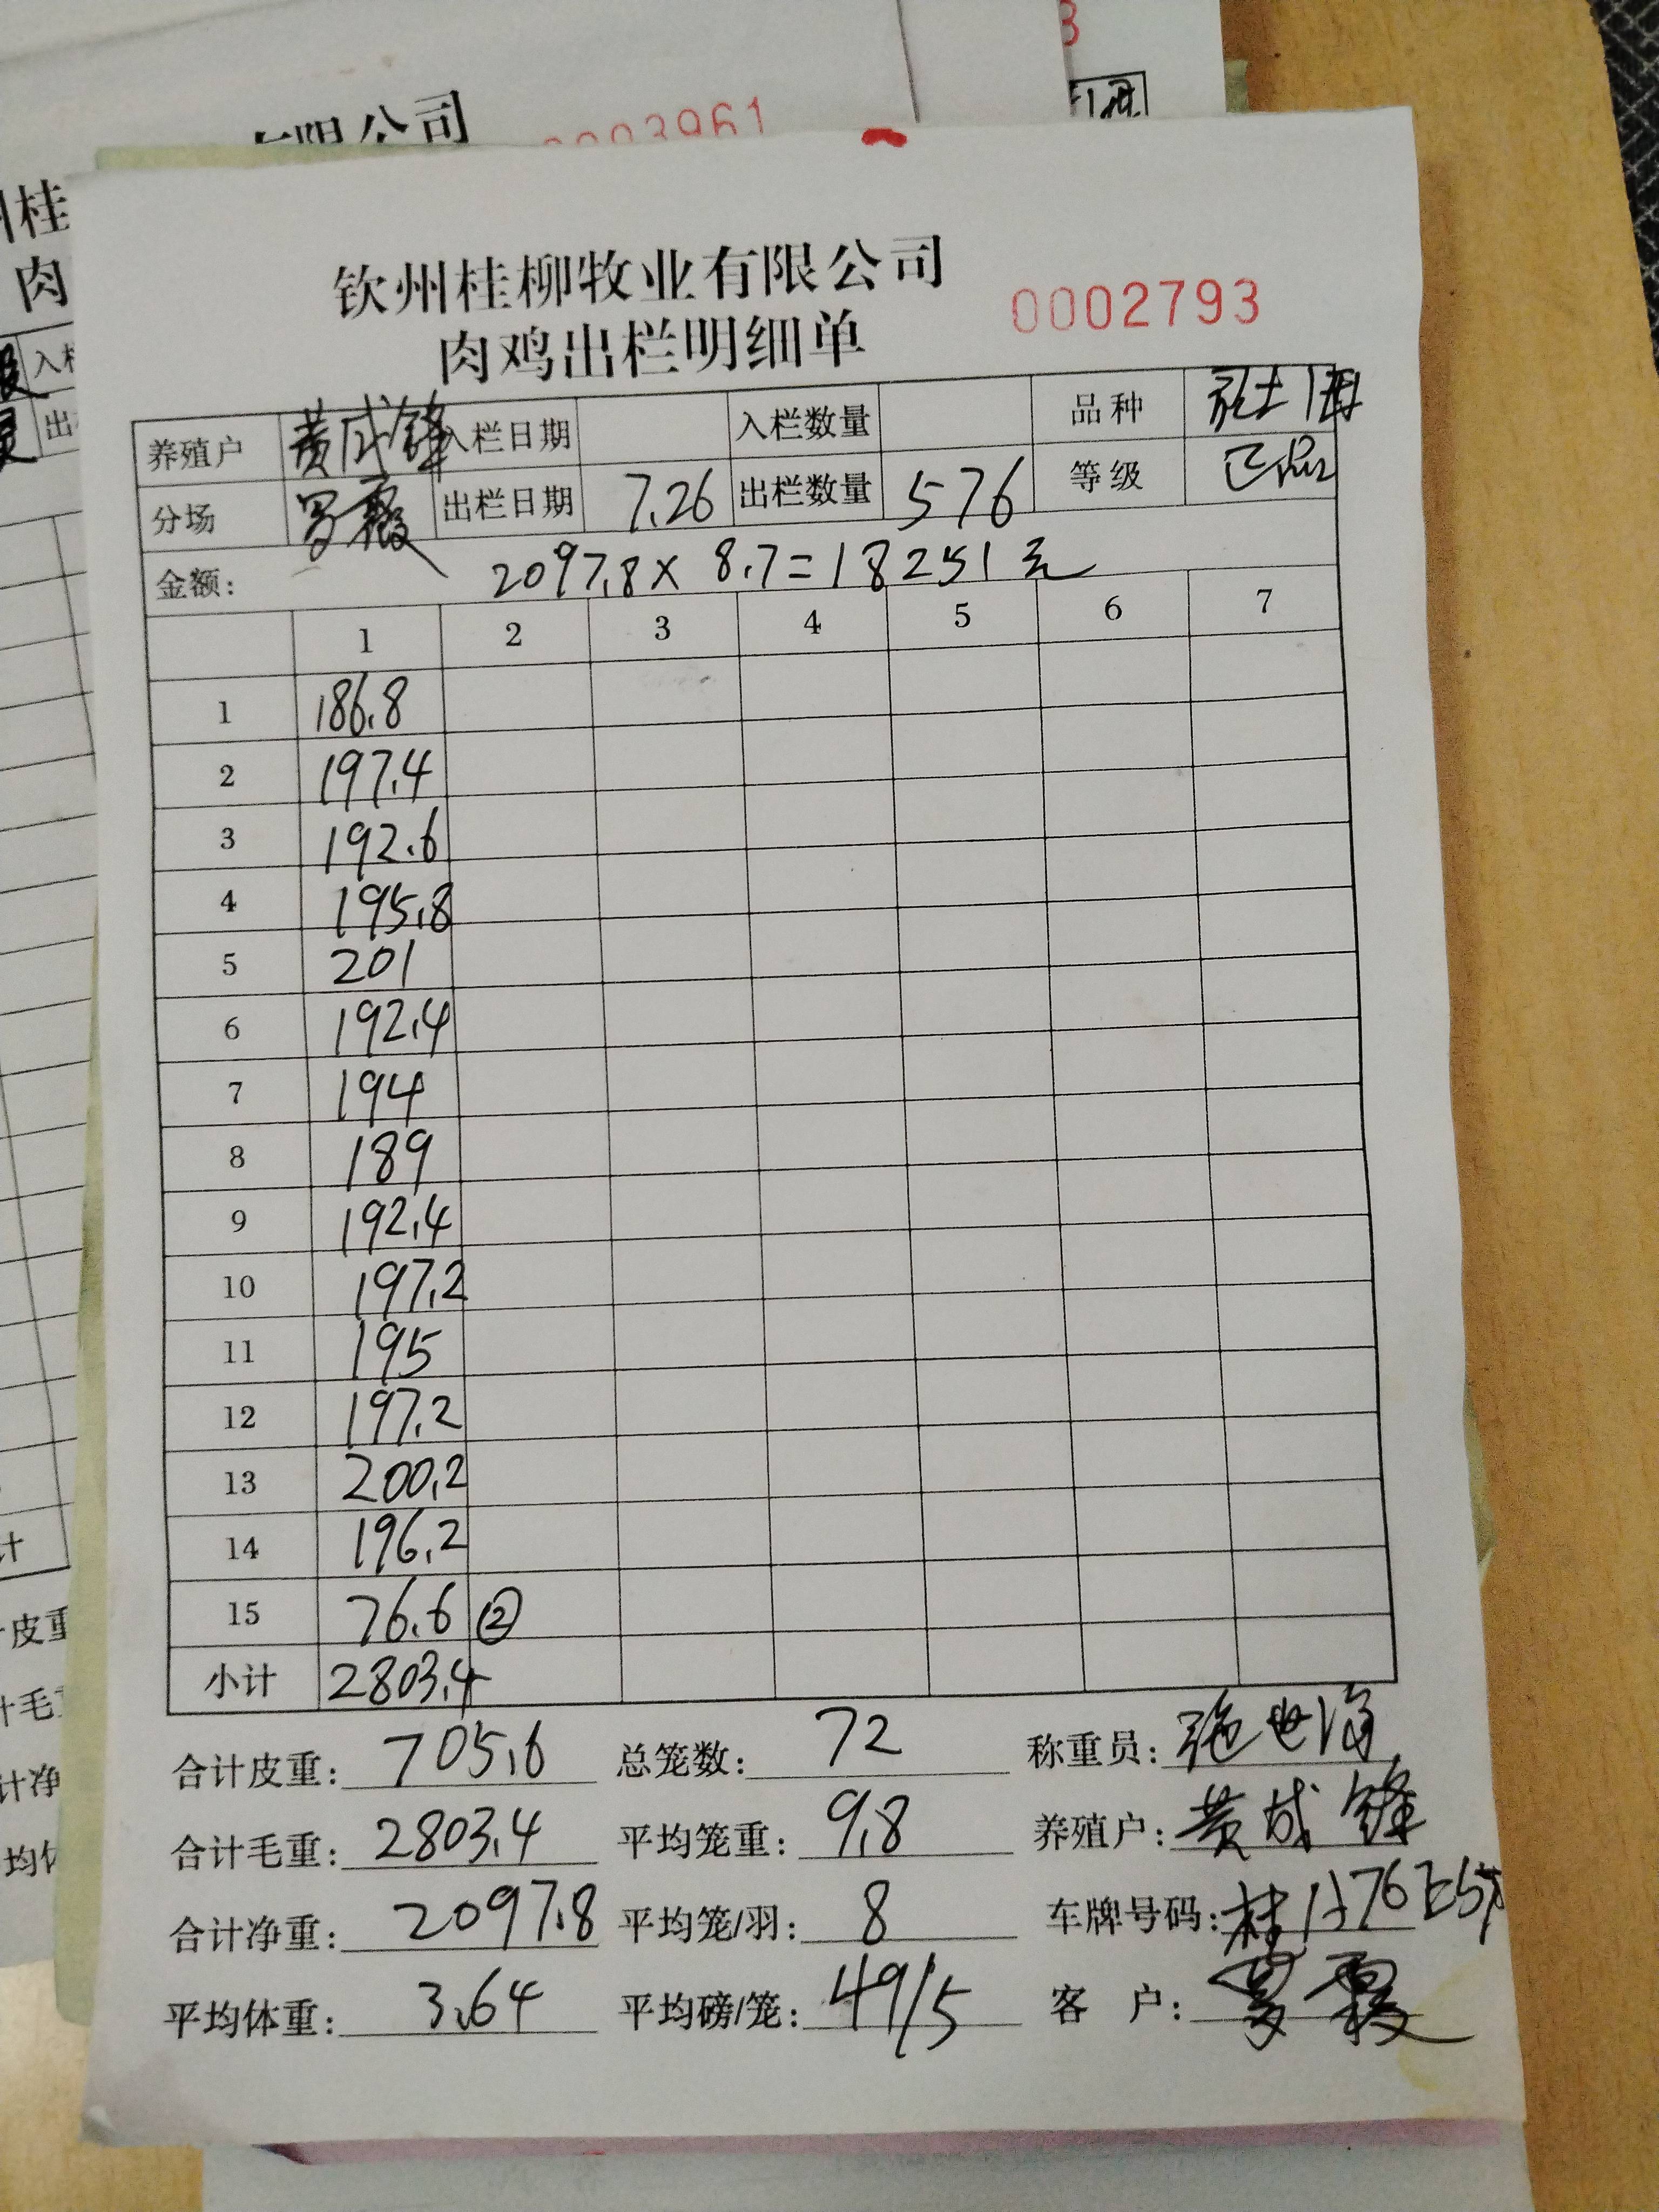 有限公司
0003961
钦州桂柳牧业有限公司
0002793
肉鸡出栏明细单
养殖户 黄成锋 入栏日期 入栏数量 品种
分场 出栏日期 7.26 出栏数量 576 等级
金额: 2097.8×8.7=18251元
1 2 3 4 5 6 7
1 186.8
2 197.4
3 192.6
4 195.8
5 201
6 192.4
7 194
8 189
9 192.4
10 197.2
11 195
12 197.2
13 200.2
14 196.2
15 76.6 ②
小计 2803.4
合计皮重: 705.6 总笼数: 72 称重员:
合计毛重: 2803.4 平均笼重: 9.8 养殖户: 黄成锋
合计净重: 2097.8 平均笼/羽: 8 车牌号码:
平均体重: 3.64 平均磅/笼: 49/5 客 户: